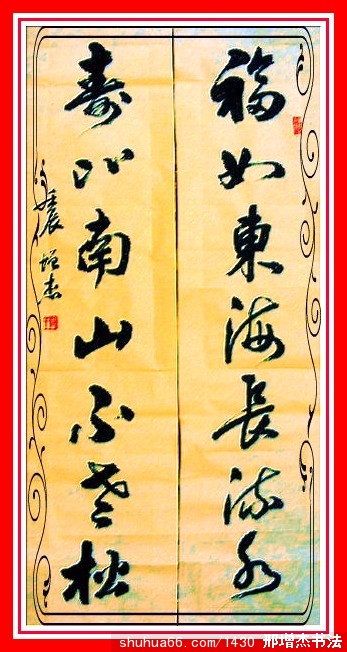 福如東海長流水
寿比南山不老松
增杰
shuhua66.com/1430 邢增杰书法